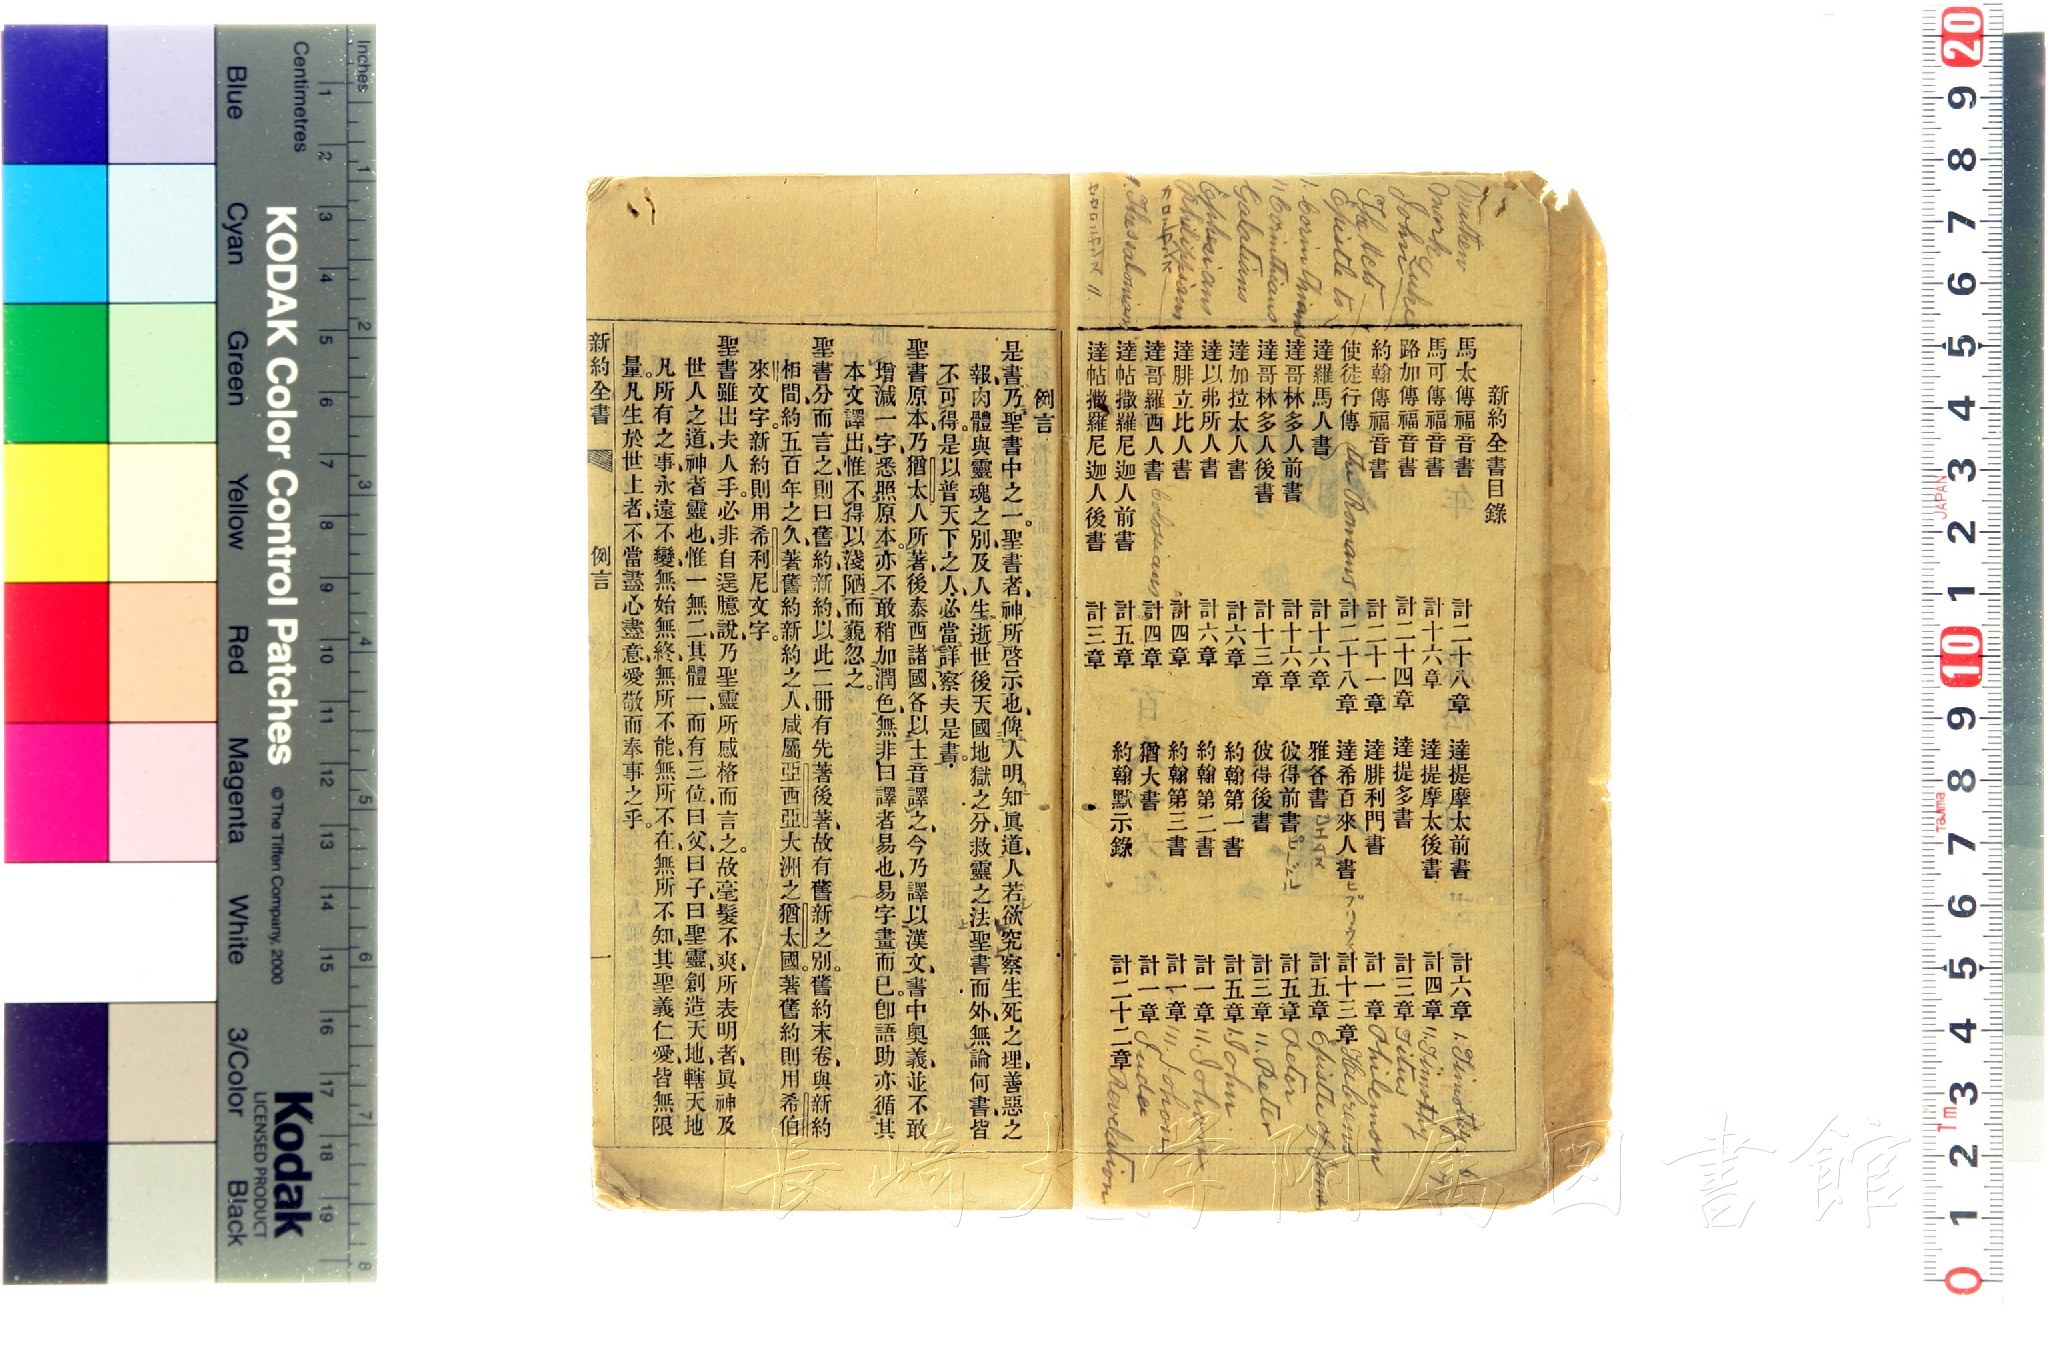 新約全書目錄
馬太傳福音書 計二十八章
馬可傳福音書 計十六章
路加傳福音書 計二十四章
約翰傳福音書 計二十一章
使徒行傳 the Romans 計二十八章
達羅馬人書 計十六章
達哥林多人前書 計十六章
達哥林多人後書 計十三章
達加拉太人書 計六章
達以弗所人書 計六章
達腓立比人書 計四章
達哥羅西人書 Colossians 計四章
達帖撒羅尼迦人前書 計五章
達帖撒羅尼迦人後書 計三章
達提摩太前書 計六章 1. Timothy
達提摩太後書 計四章 11. Timothy
達提多書 計三章 Titus
達腓利門書 計一章 Philemon
達希百來人書 計十三章 Hebrews
雅各書 計五章 Epistle of James
彼得前書 計五章 Peter
彼得後書 計三章 11. Peter
約翰第一書 計五章 1. John
約翰第二書 計一章 11. John
約翰第三書 計一章 111. John
猶大書 計一章 Judea
約翰默示錄 計二十二章 Revelation
Matthew
Mark
Luke
John
The Acts
Epistle to
1. Corinthians
11 Corinthians
Galatians
Ephesians
Philippians
1. Thessalonian
例言
是書乃聖書中之一。聖書者、神所啓示也、俾人明知眞道、人若欲究察生死之理、善惡之
報、肉體與靈魂之別、及人生逝世後天國地獄之分、救靈之法、聖書而外、無論何書、皆
不可得。是以普天下之人、必當詳察夫是書。
聖書原本、乃猶太人所著、後泰西諸國、各以土音譯之、今乃譯以漢文、書中奥義、並不敢
增減一字、悉照原本。亦不敢稍加潤色、無非曰譯者易也、易字畫而已。卽語助亦循其
本文譯出、惟不得以淺陋而藐忽之。
聖書分而言之、則曰舊約新約、以此二冊有先著後著、故有舊新之別。舊約末卷、與新約
相間約五百年之久、著舊約新約之人、咸屬亞西亞大洲之猶太國。著舊約則用希伯
來文字。新約則用希利尼文字。
聖書雖出夫人手。必非自逞臆說、乃聖靈所感格而言之。故毫髮不爽、所表明者、眞神及
世人之道、神者靈也、惟一無二、其體一而有三位、曰父曰子曰聖靈、創造天地、轄天地
凡所有之事、永遠不變、無始無終、無所不能、無所不在、無所不知、其聖義仁愛、皆無限
量。凡生於世上者、不當盡心盡意、愛敬而奉事之乎。
新約全書 例言 一
長崎大学附属図書館
KODAK Color Control Patches
© The Tiffen Company, 2000
Kodak
LICENSED PRODUCT
Inches 1 2 3 4 5 6 7 8
Centimetres 1 2 3 4 5 6 7 8 9 10 11 12 13 14 15 16 17 18 19
Blue Cyan Green Yellow Red Magenta White 3/Color Black
20 9 8 7 6 5 4 3 2 1 10 9 8 7 6 5 4 3 2 1 0
JAPAN
Tajima
Tm